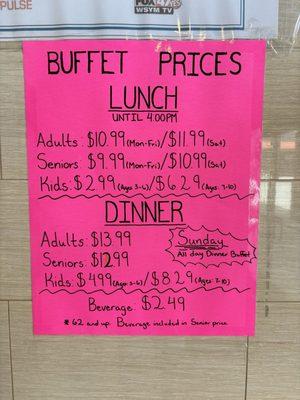 PULSE
FOX
WSYM TV
BUFFET PRICES
LUNCH
UNTIL 4:00PM
Adults: $10.99 (Mon-Fri)/$11.99 (Sat)
Seniors: $9.99 (Mon-Fri)/$10.99 (Sat)
Kids: $2.99 (Ages 3-6)/$6.29 (Ages 7-10)
DINNER
Adults: $13.99
Seniors: $12.99
Sunday
All day Dinner Buffet
Kids: $4.99 (Ages 3-6)/$8.29 (Ages 7-10)
Beverage: $2.49
* 62 and up. Beverage included in Senior price.